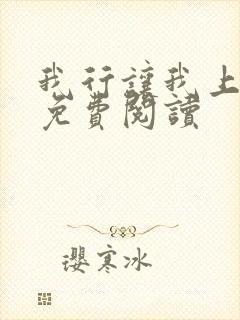 我行讓我上
免費閱讀
瓔寒冰